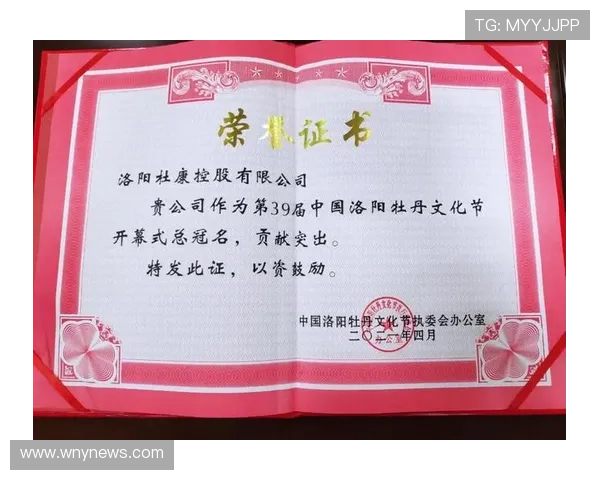 TG: MYYJJPP
荣誉证书
洛阳杜康控股有限公司
贵公司作为第39届中国洛阳牡丹文化节
开幕式总冠名，贡献突出。
特发此证，以资鼓励。
中国洛阳牡丹文化节执委会办公室
二〇二一年四月
办公室
www.wnynews.com